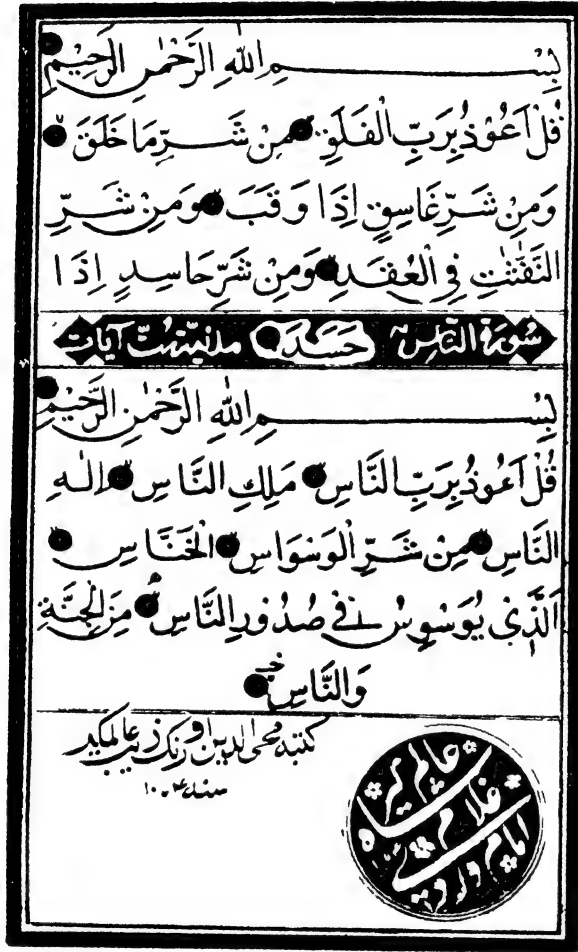 بِسْمِ اللهِ الرَّحْمٰنِ الرَّحِيْمِ
قُلْ اَعُوْذُ بِرَبِّ الْفَلَقِ مِنْ شَرِّ مَا خَلَقَ
وَمِنْ شَرِّ غَاسِقٍ اِذَا وَقَبَ وَمِنْ شَرِّ
النَّفّٰثٰتِ فِى الْعُقَدِ وَمِنْ شَرِّ حَاسِدٍ اِذَا
سُورَة النَّاسِ حَسَدَ مدنية ست آيات
بِسْمِ اللهِ الرَّحْمٰنِ الرَّحِيْمِ
قُلْ اَعُوْذُ بِرَبِّ النَّاسِ مَلِكِ النَّاسِ اِلٰهِ
النَّاسِ مِنْ شَرِّ الْوَسْوَاسِ الْخَنَّاسِ
الَّذِىْ يُوَسْوِسُ فِىْ صُدُوْرِ النَّاسِ مِنَ الْجِنَّةِ
وَالنَّاسِ
كتبه محى الدين اورنگ زيب عالمگير
سنه
عالم گير
شاه
غلام
امام